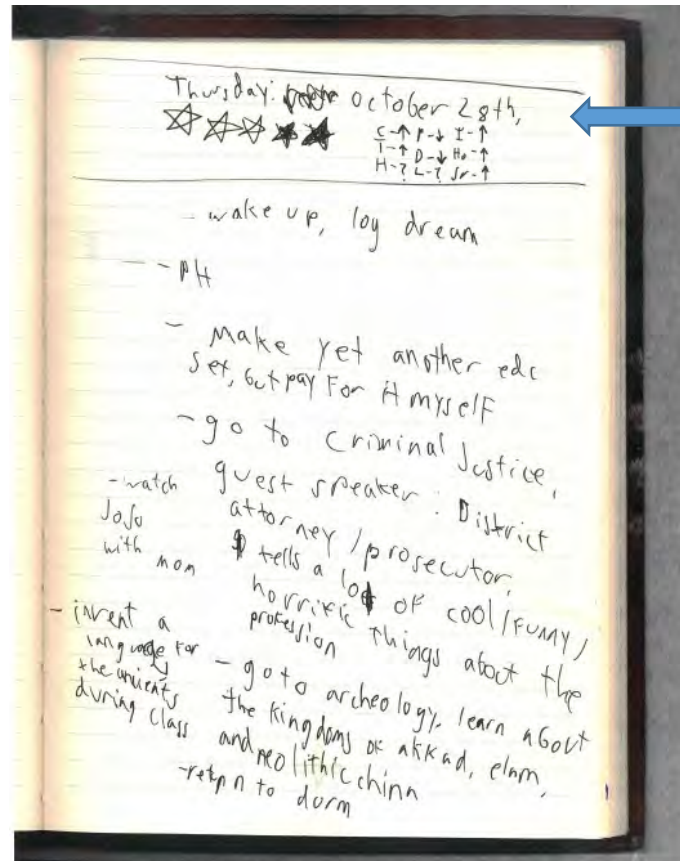 Thursday: october 28th,
C-↑ P-↓ I-↑
T-↑ D-↓ Ho-↑
H-? L-? Sr-↑
- wake up, log dream
- - PH
- Make yet another edc
set, but pay for it myself
- go to Criminal Justice,
guest speaker: District
attorney / prosecutor,
tells a lot of cool/funny/
horrific things about the
profession
- watch
JoJo
with mom
- invent a
language for
the ancients
during class
- go to archeology, learn about
the kingdoms of akkad, elam,
and neolithic china
- return to dorm